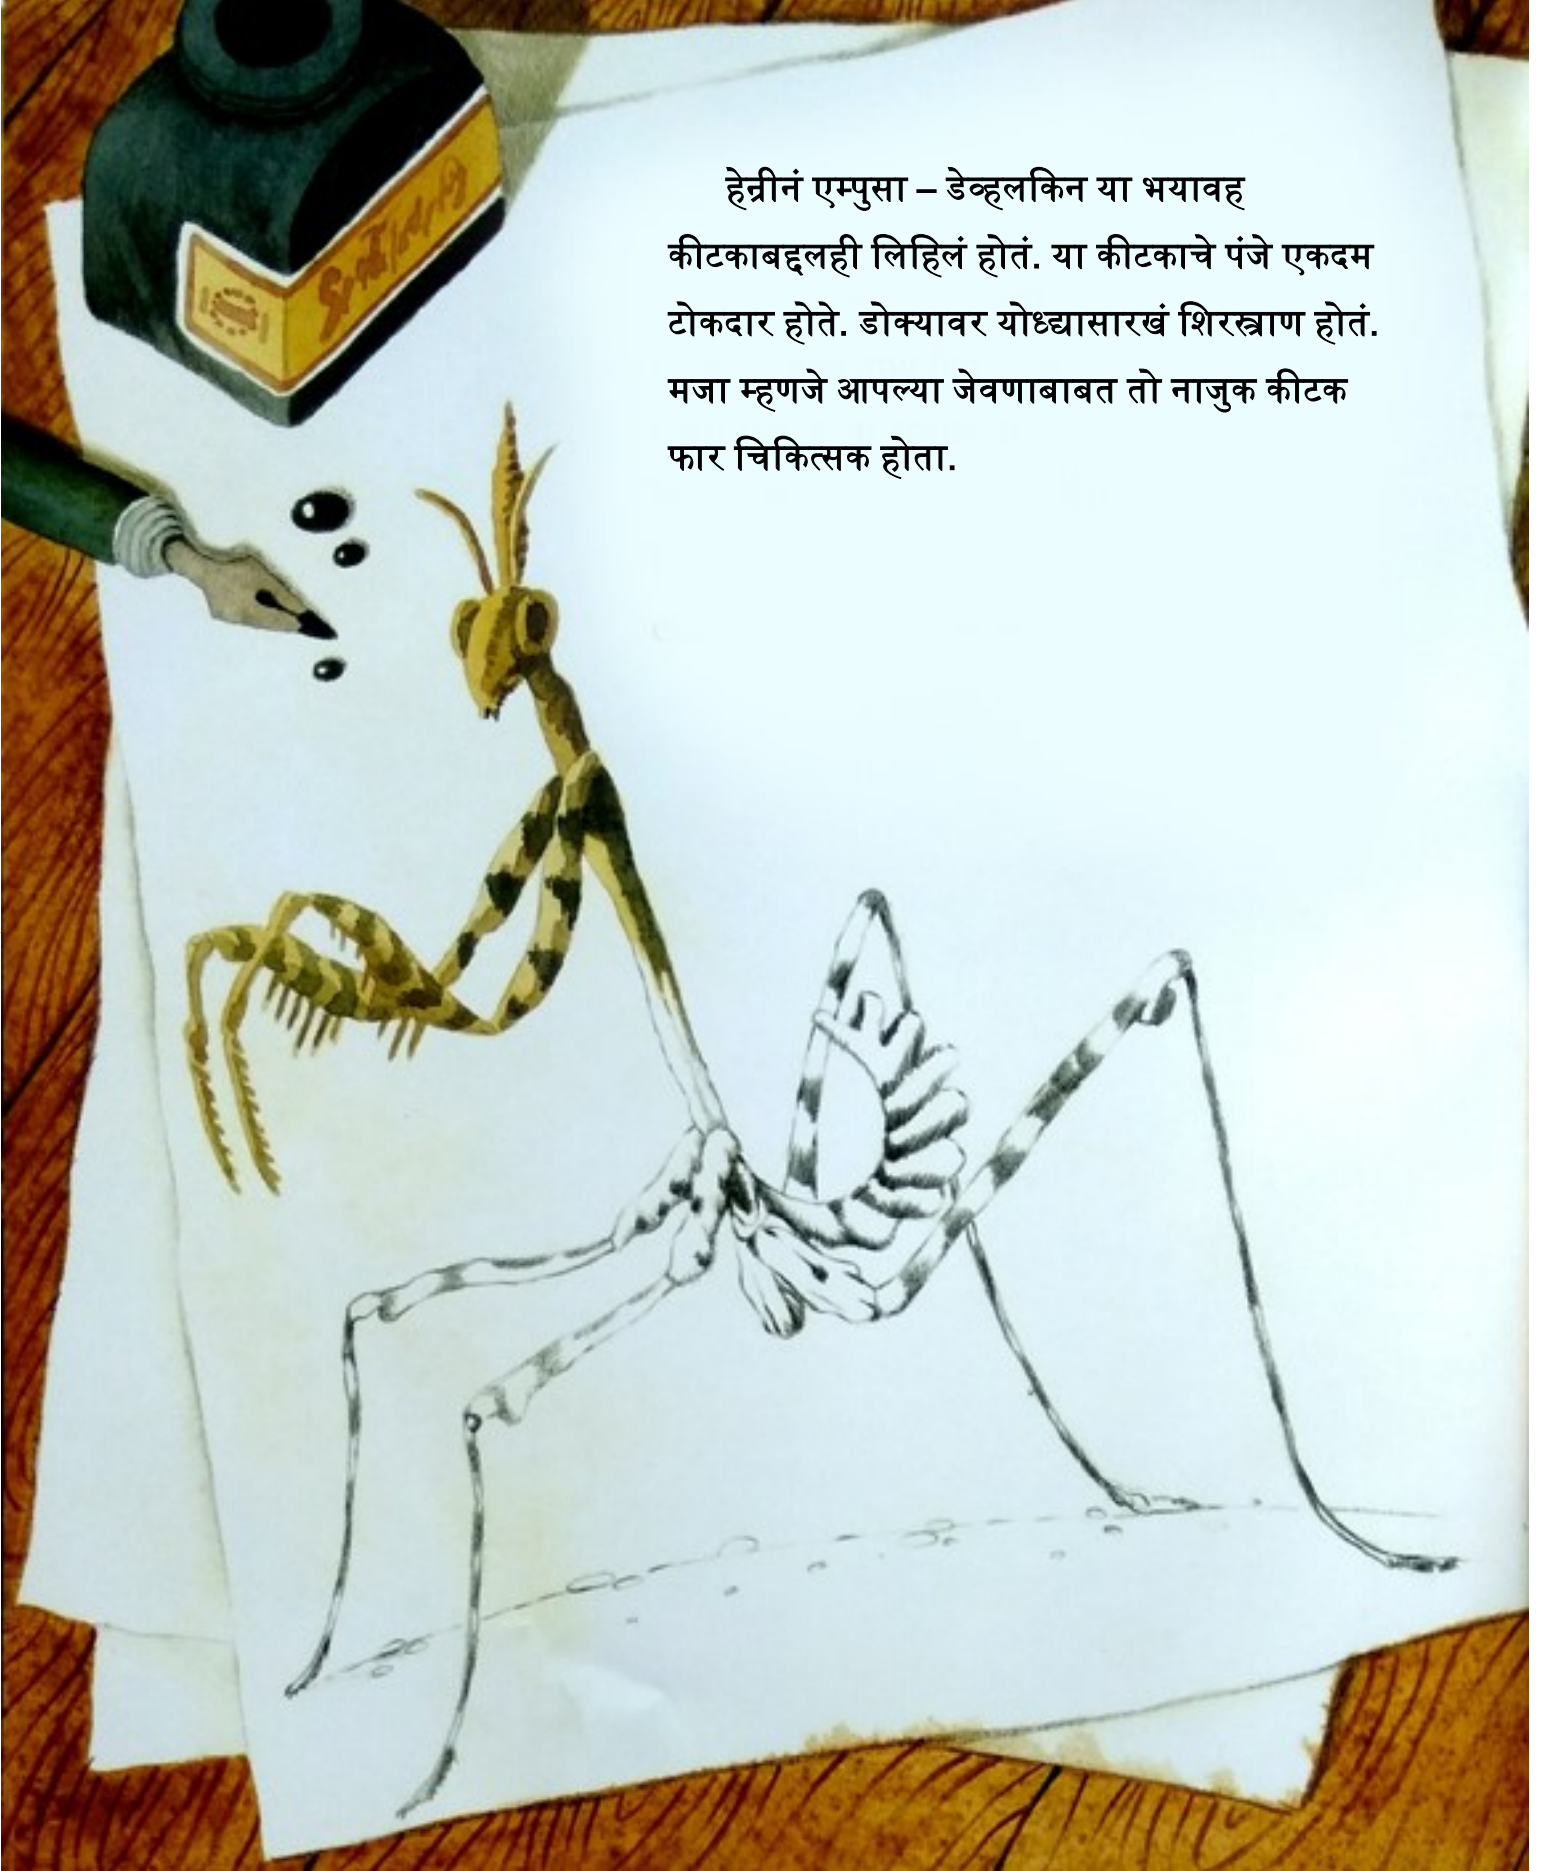 हेन्रीनं एम्पुसा – डेव्हलकिन या भयावह
कीटकाबद्दलही लिहिलं होतं. या कीटकाचे पंजे एकदम
टोकदार होते. डोक्यावर योध्द्यासारखं शिरस्त्राण होतं.
मजा म्हणजे आपल्या जेवणाबाबत तो नाजुक कीटक
फार चिकित्सक होता.